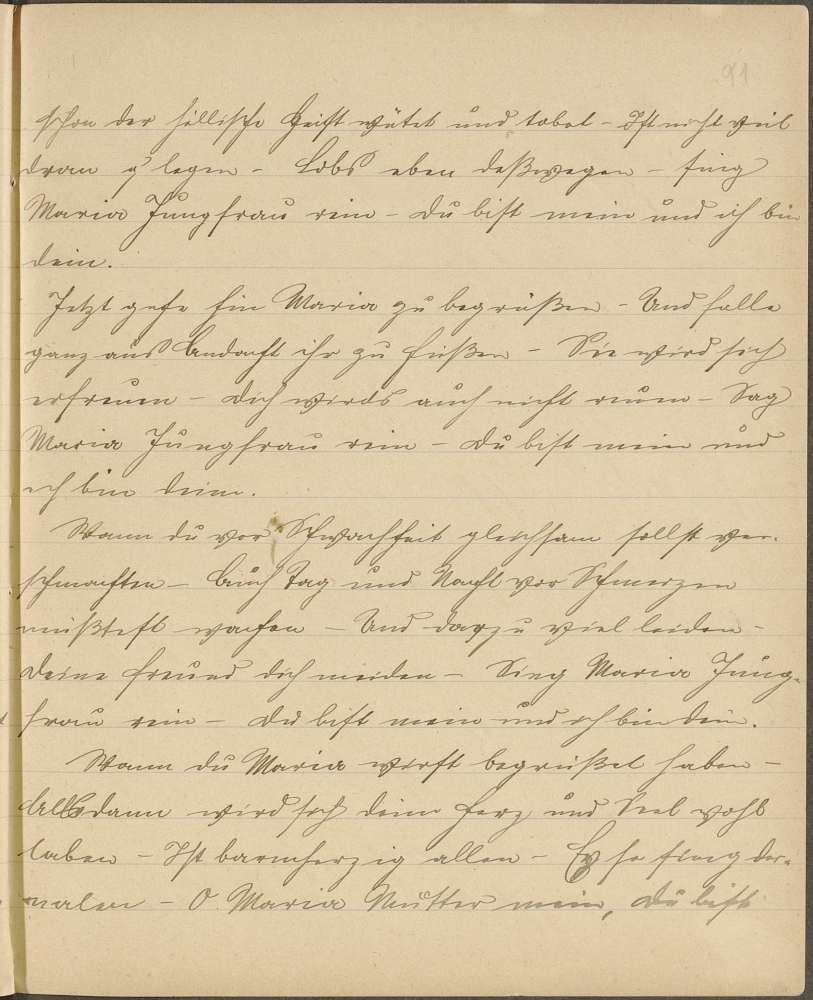 91
schon der höllische Geist wütet und tobet - Ist nicht viel
dran g'legen - Lobs eben deßwegen - sing
Maria Jungfrau rein - du bist mein und ich bin
dein.
Jetzt gehe hin Maria zu begrüßen - Und falle
ganz aus Andacht ihr zu Füßen - Sie wird sich
erfreuen - dich wirds auch nicht reuen - Sag
Maria Jungfrau rein - du bist mein und
ich bin dein.
Wann du vor Schwachheit gleichsam sollst ver-
schmachten - Auch Tag und Nacht vor Schmerzen
müßtest wachen - Und dazu viel leiden -
deine Freund dich meiden - Sing Maria Jung-
frau rein - du bist mein und ich bin dein.
Wann du Maria wirst begrüßet haben -
Alsdann wird sich dein Herz und Seel wohl
laben - Ist barmherzig allen - Ey so sing der-
malen - O Maria Mutter mein, du bist